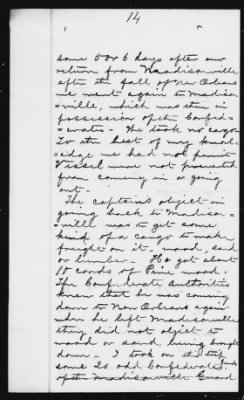 14
some 5 or 6 days after our
return from Maadisonville
after the fall of New Orleans
we went again to Madison
=ville, which was then in
possession of the Confed=
=erates. We took no cargo
To the best of my knowl=
=edge we had not permit
Vessel were not prevented
from coming in or going
out.
The captain's object in
going back to Madison=
=ville was to get some
kind of a cargo to make
freight on it. wood, sand
or lumber. He got about
15 cords of Pine wood.
The Confederate Authorities
knew that he was coming
down to New Orleans again
when he left Madisonville
they did not object to
wood or sand being brought
down. I took on this trip
some 20 odd Confederates
of the Madisonville Guard